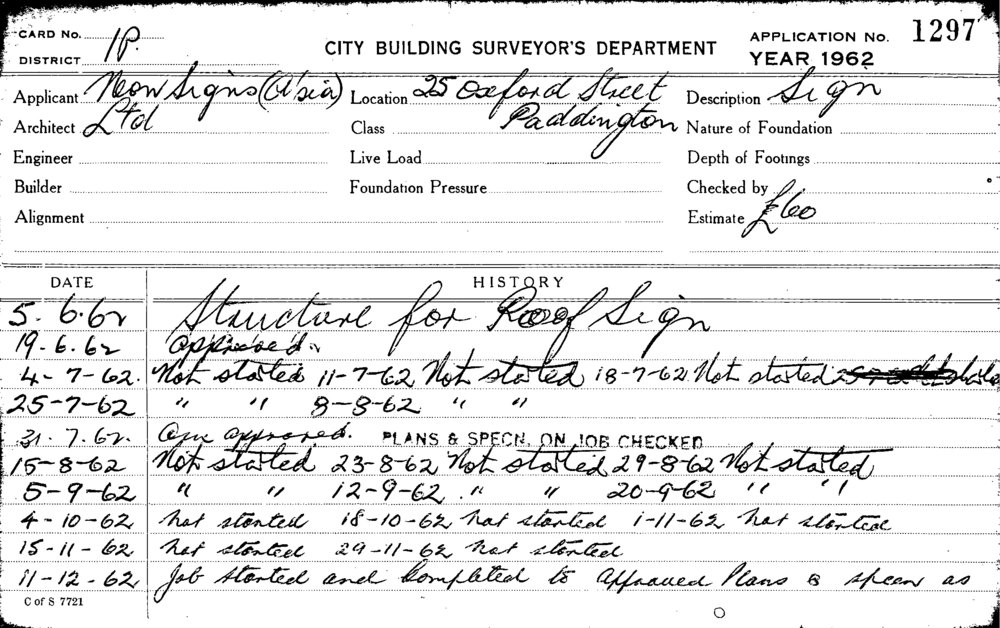 CARD No. 1P.
CITY BUILDING SURVEYOR'S DEPARTMENT
APPLICATION No. 1297
DISTRICT
YEAR 1962
Applicant Neon Signs (A'sia) Location 25 Oxford Street Description Sign
Architect Ltd Class Paddington Nature of Foundation
Engineer Live Load Depth of Footings
Builder Foundation Pressure Checked by
Alignment Estimate £60
DATE HISTORY
5.6.62 Structure for Roof Sign
19.6.62 Approved.
4-7-62. Not started 11-7-62 Not started 18-7-62 Not started
25-7-62 " " 8-8-62 " "
31.7.62. approved. PLANS & SPECN. ON JOB CHECKED
15-8-62 Not started 23-8-62 Not started 29-8-62 Not started
5-9-62 " " 12-9-62 " " 20-9-62 " "
4-10-62 not started 18-10-62 not started 1-11-62 not started
15-11-62 not started 29-11-62 not started
11-12-62 Job started and Completed to Approved Plans & specn as
C of S 7721